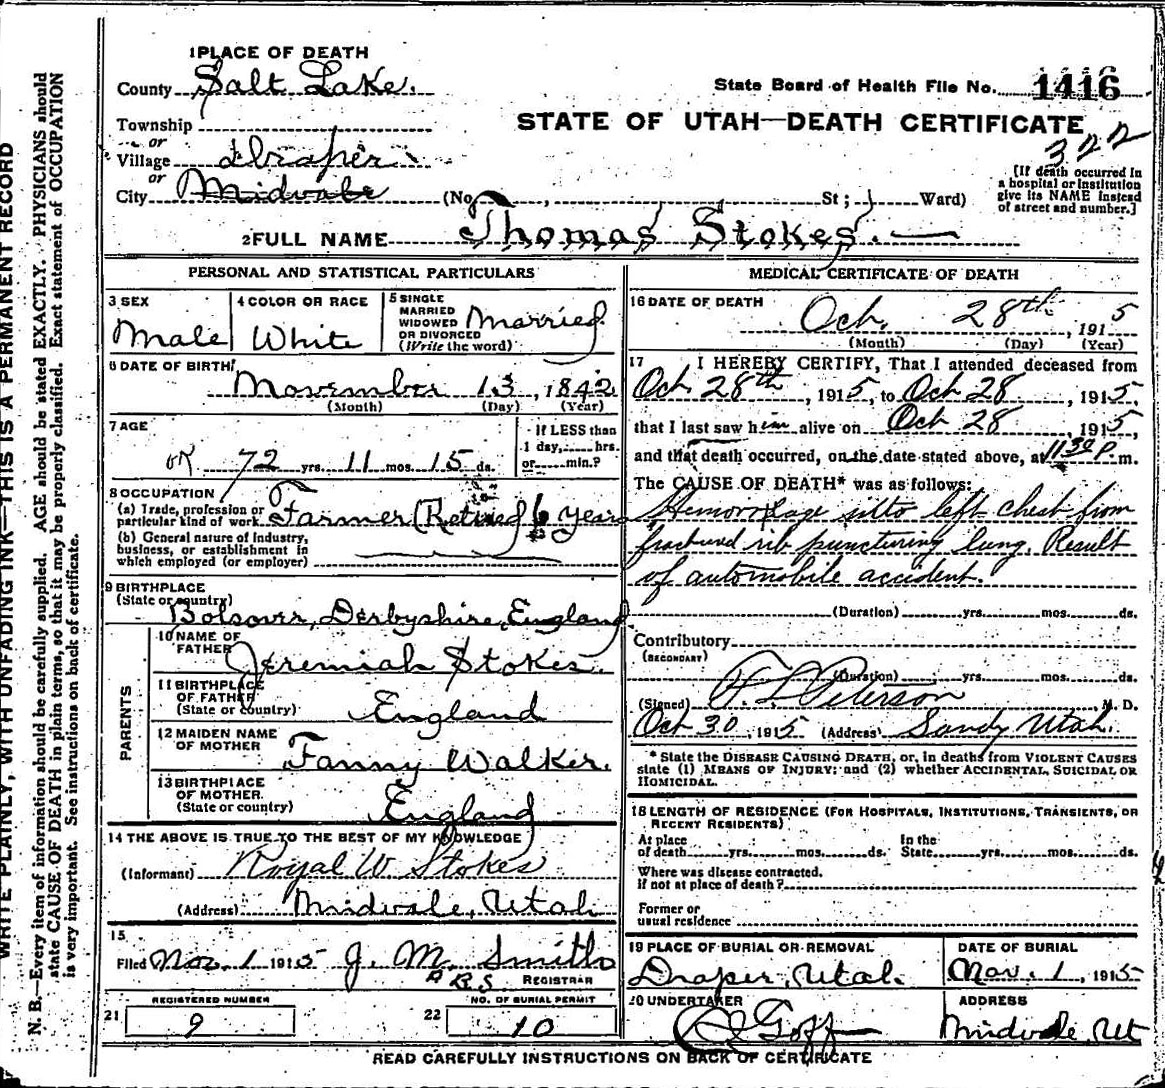 WRITE PLAINLY, WITH UNFADING INK—THIS IS A PERMANENT RECORD
N. B.—Every item of information should be carefully supplied. AGE should be stated EXACTLY. PHYSICIANS should
state CAUSE OF DEATH in plain terms, so that it may be properly classified. Exact statement of OCCUPATION
is very important. See instructions on back of certificate.
1 PLACE OF DEATH
County Salt Lake.
Township
or
Village Draper
or
City Midvale
State Board of Health File No. 1416
STATE OF UTAH—DEATH CERTIFICATE
322
(No , St ; Ward)
[If death occurred in
a hospital or institution
give its NAME instead
of street and number.]
2 FULL NAME Thomas Stokes.
PERSONAL AND STATISTICAL PARTICULARS
3 SEX Male
4 COLOR OR RACE White
5 SINGLE
MARRIED
WIDOWED
OR DIVORCED
(Write the word) Married
6 DATE OF BIRTH
November 13, 1842
(Month) (Day) (Year)
7 AGE
72 yrs. 11 mos. 15 ds.
If LESS than
1 day, hrs.
or min.?
8 OCCUPATION
(a) Trade, profession or
particular kind of work Farmer (Retired 6 years
(b) General nature of industry,
business, or establishment in
which employed (or employer)
9 BIRTHPLACE
(State or country)
Bolsover, Derbyshire, England
PARENTS
10 NAME OF
FATHER Jeremiah Stokes.
11 BIRTHPLACE
OF FATHER
(State or country) England
12 MAIDEN NAME
OF MOTHER Fanny Walker.
13 BIRTHPLACE
OF MOTHER
(State or country) England
14 THE ABOVE IS TRUE TO THE BEST OF MY KNOWLEDGE
(Informant) Royal W Stokes
(Address) Midvale, Utah
15
Filed Nov. 1 1915 J. M. Smith
REGISTRAR
REGISTERED NUMBER
21 9
NO. OF BURIAL PERMIT
22 10
MEDICAL CERTIFICATE OF DEATH
16 DATE OF DEATH
Oct. 28th, 1915
(Month) (Day) (Year)
17 I HEREBY CERTIFY, That I attended deceased from
Oct 28th, 1915, to Oct 28, 1915,
that I last saw him alive on Oct 28, 1915,
and that death occurred, on the date stated above, at 11 30 P. m.
The CAUSE OF DEATH* was as follows:
Hemorrhage into left chest from
fractured rib puncturing lung. Result
of automobile accident.
(Duration) yrs. mos. ds.
Contributory
(SECONDARY)
(Duration) yrs. mos. ds.
(Signed) Peterson, M. D.
Oct 30 1915 (Address) Sandy Utah.
* State the DISEASE CAUSING DEATH, or, in deaths from VIOLENT CAUSES
state (1) MEANS OF INJURY; and (2) whether ACCIDENTAL, SUICIDAL OR
HOMICIDAL.
18 LENGTH OF RESIDENCE (FOR HOSPITALS, INSTITUTIONS, TRANSIENTS, OR
RECENT RESIDENTS)
At place
of death yrs. mos. ds.
In the
State yrs. mos. ds.
Where was disease contracted,
if not at place of death?
Former or
usual residence
19 PLACE OF BURIAL OR REMOVAL
Draper, Utah.
DATE OF BURIAL
Nov. 1, 1915
20 UNDERTAKER
Goff
ADDRESS
Midvale, Ut
READ CAREFULLY INSTRUCTIONS ON BACK OF CERTIFICATE